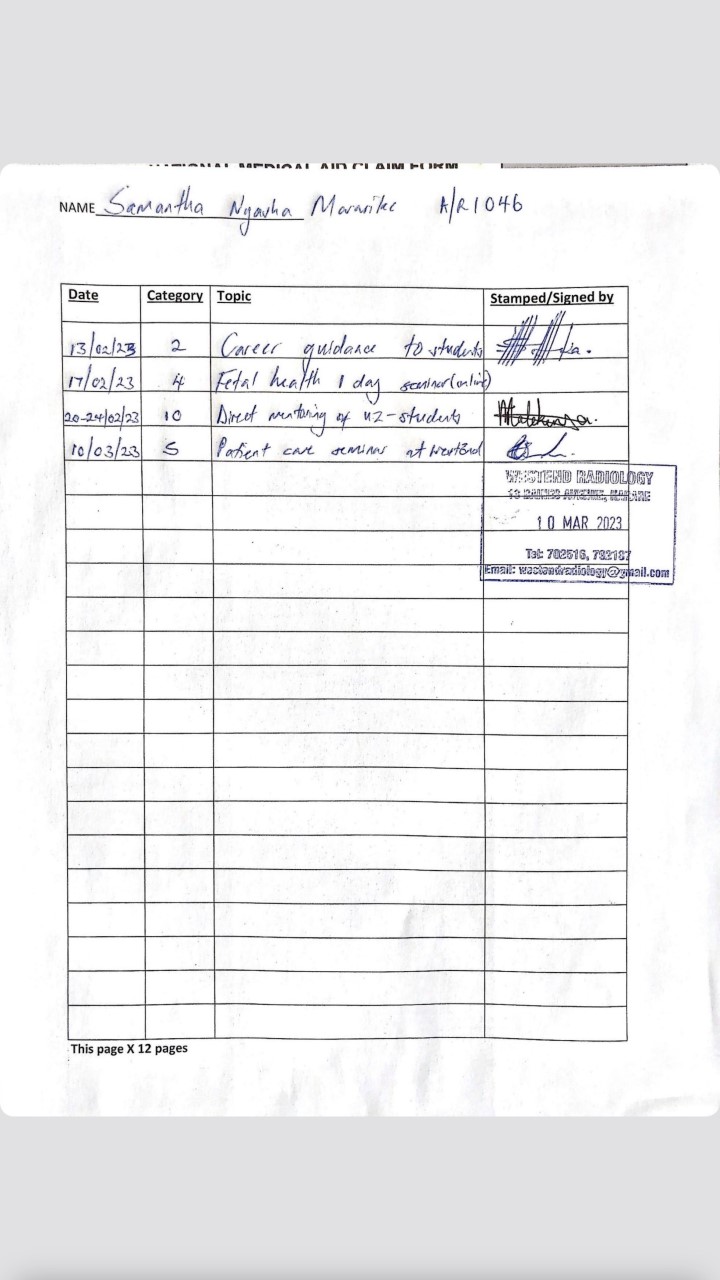 NATIONAL MEDICAL AID CLAIM FORM
NAME Samantha A/R1046
Date Category Topic Stamped/Signed by
13/02/23 2 Career guidance to students
17/02/23 4 Fetal health 1 day seminar (online)
20-24/02/23 10 Direct mentoring of UZ-students
10/03/23 5 Patient care seminar at WestEnd
WESTEND RADIOLOGY
AVENUE, HARARE
10 MAR 2023
Tel: 702516,
Email: westendradiology@gmail.com
This page X 12 pages